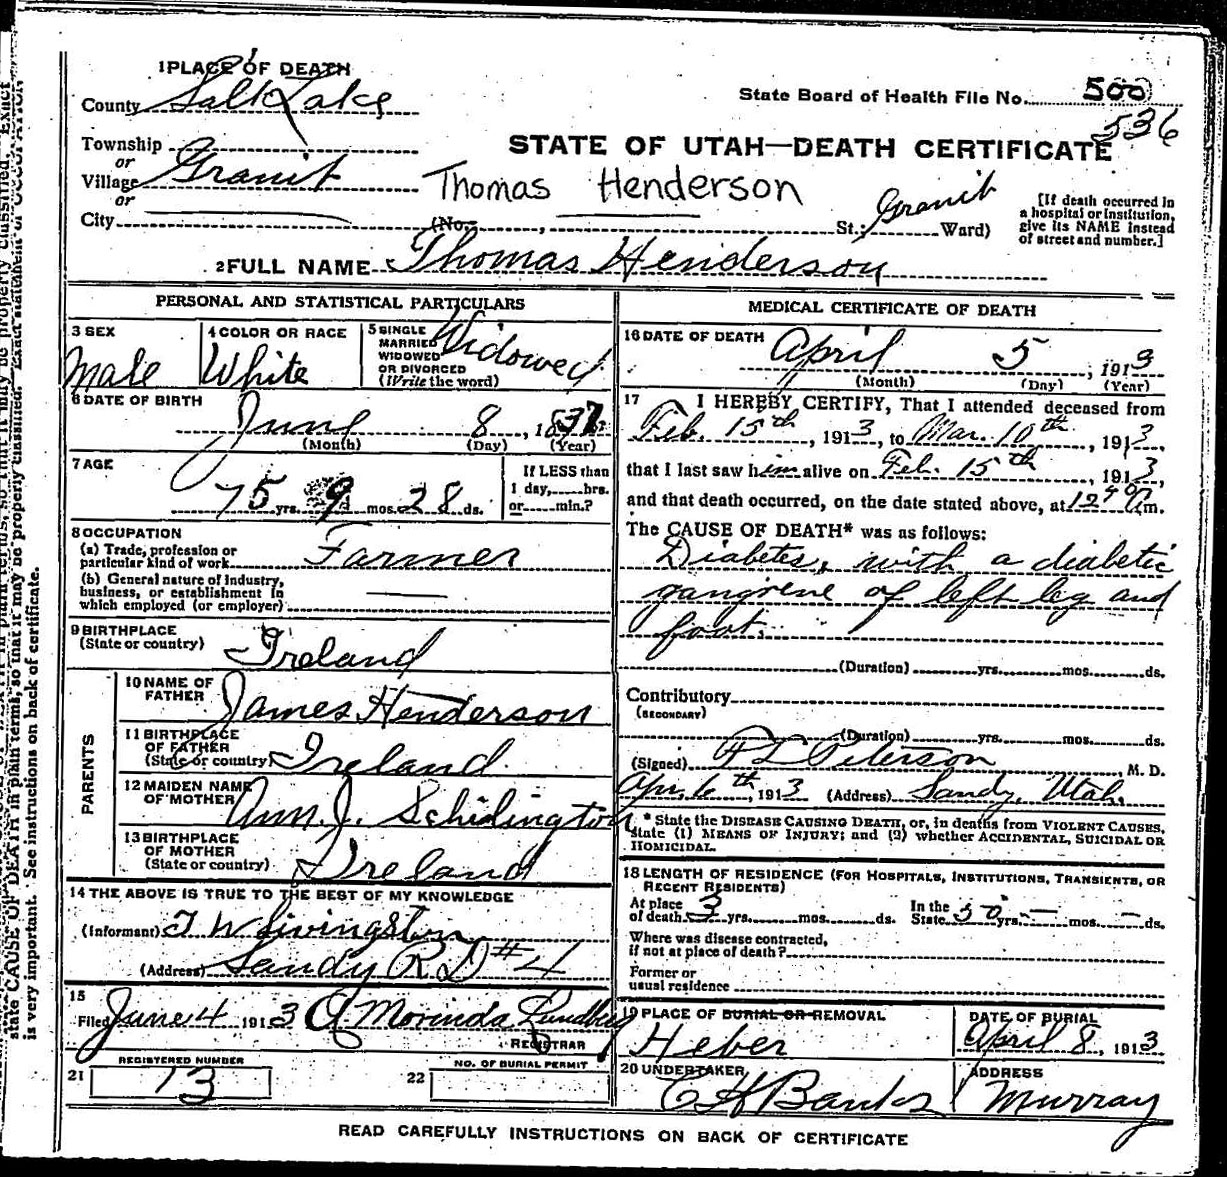 1 PLACE OF DEATH
County Salt Lake
State Board of Health File No. 500
536
Township
or
Village Granit
or
City
STATE OF UTAH—DEATH CERTIFICATE
Thomas Henderson
(No. , St.; Granit Ward)
[If death occurred in
a hospital or institution,
give its NAME instead
of street and number.]
2 FULL NAME Thomas Henderson
PERSONAL AND STATISTICAL PARTICULARS
3 SEX
Male
4 COLOR OR RACE
White
5 SINGLE
MARRIED
WIDOWED
OR DIVORCED
(Write the word)
Widowed
6 DATE OF BIRTH
June 8, 1837
(Month) (Day) (Year)
7 AGE
75 yrs. 9 mos. 28 ds.
If LESS than
1 day, hrs.
or min.?
8 OCCUPATION
(a) Trade, profession or
particular kind of work Farmer
(b) General nature of industry,
business, or establishment in
which employed (or employer)
9 BIRTHPLACE
(State or country) Ireland
PARENTS
10 NAME OF
FATHER James Henderson
11 BIRTHPLACE
OF FATHER
(State or country) Ireland
12 MAIDEN NAME
OF MOTHER Ann. J. Schidington
13 BIRTHPLACE
OF MOTHER
(State or country) Ireland
14 THE ABOVE IS TRUE TO THE BEST OF MY KNOWLEDGE
(Informant) T W Livingston
(Address) Sandy R D #4
15
Filed June 4 1913 A Morinda Lundberg
REGISTRAR
REGISTERED NUMBER
21 13
NO. OF BURIAL PERMIT
22
MEDICAL CERTIFICATE OF DEATH
16 DATE OF DEATH April 5, 1913
(Month) (Day) (Year)
17 I HEREBY CERTIFY, That I attended deceased from
Feb. 15th, 1913, to Mar. 10th, 1913,
that I last saw him alive on Feb. 15th, 1913,
and that death occurred, on the date stated above, at 12 40 m.
The CAUSE OF DEATH* was as follows:
Diabetes, with a diabetic
gangrene of left leg and
foot.
(Duration) yrs. mos. ds.
Contributory
(SECONDARY)
(Duration) yrs. mos. ds.
(Signed) Peterson, M. D.
Apr. 6th, 1913 (Address) Sandy, Utah.
* State the DISEASE CAUSING DEATH, or, in deaths from VIOLENT CAUSES,
state (1) MEANS OF INJURY; and (2) whether ACCIDENTAL, SUICIDAL OR
HOMICIDAL.
18 LENGTH OF RESIDENCE (FOR HOSPITALS, INSTITUTIONS, TRANSIENTS, OR
RECENT RESIDENTS)
At place
of death 3 yrs. mos. ds.
In the
State 50 yrs. — mos. — ds.
Where was disease contracted,
if not at place of death?
Former or
usual residence
19 PLACE OF BURIAL OR REMOVAL
Heber
DATE OF BURIAL
April 8, 1913
20 UNDERTAKER
C H Banks
ADDRESS
Murray
READ CAREFULLY INSTRUCTIONS ON BACK OF CERTIFICATE
state CAUSE OF DEATH in plain terms, so that it may be properly classified. Exact statement of OCCUPATION
is very important. See instructions on back of certificate.